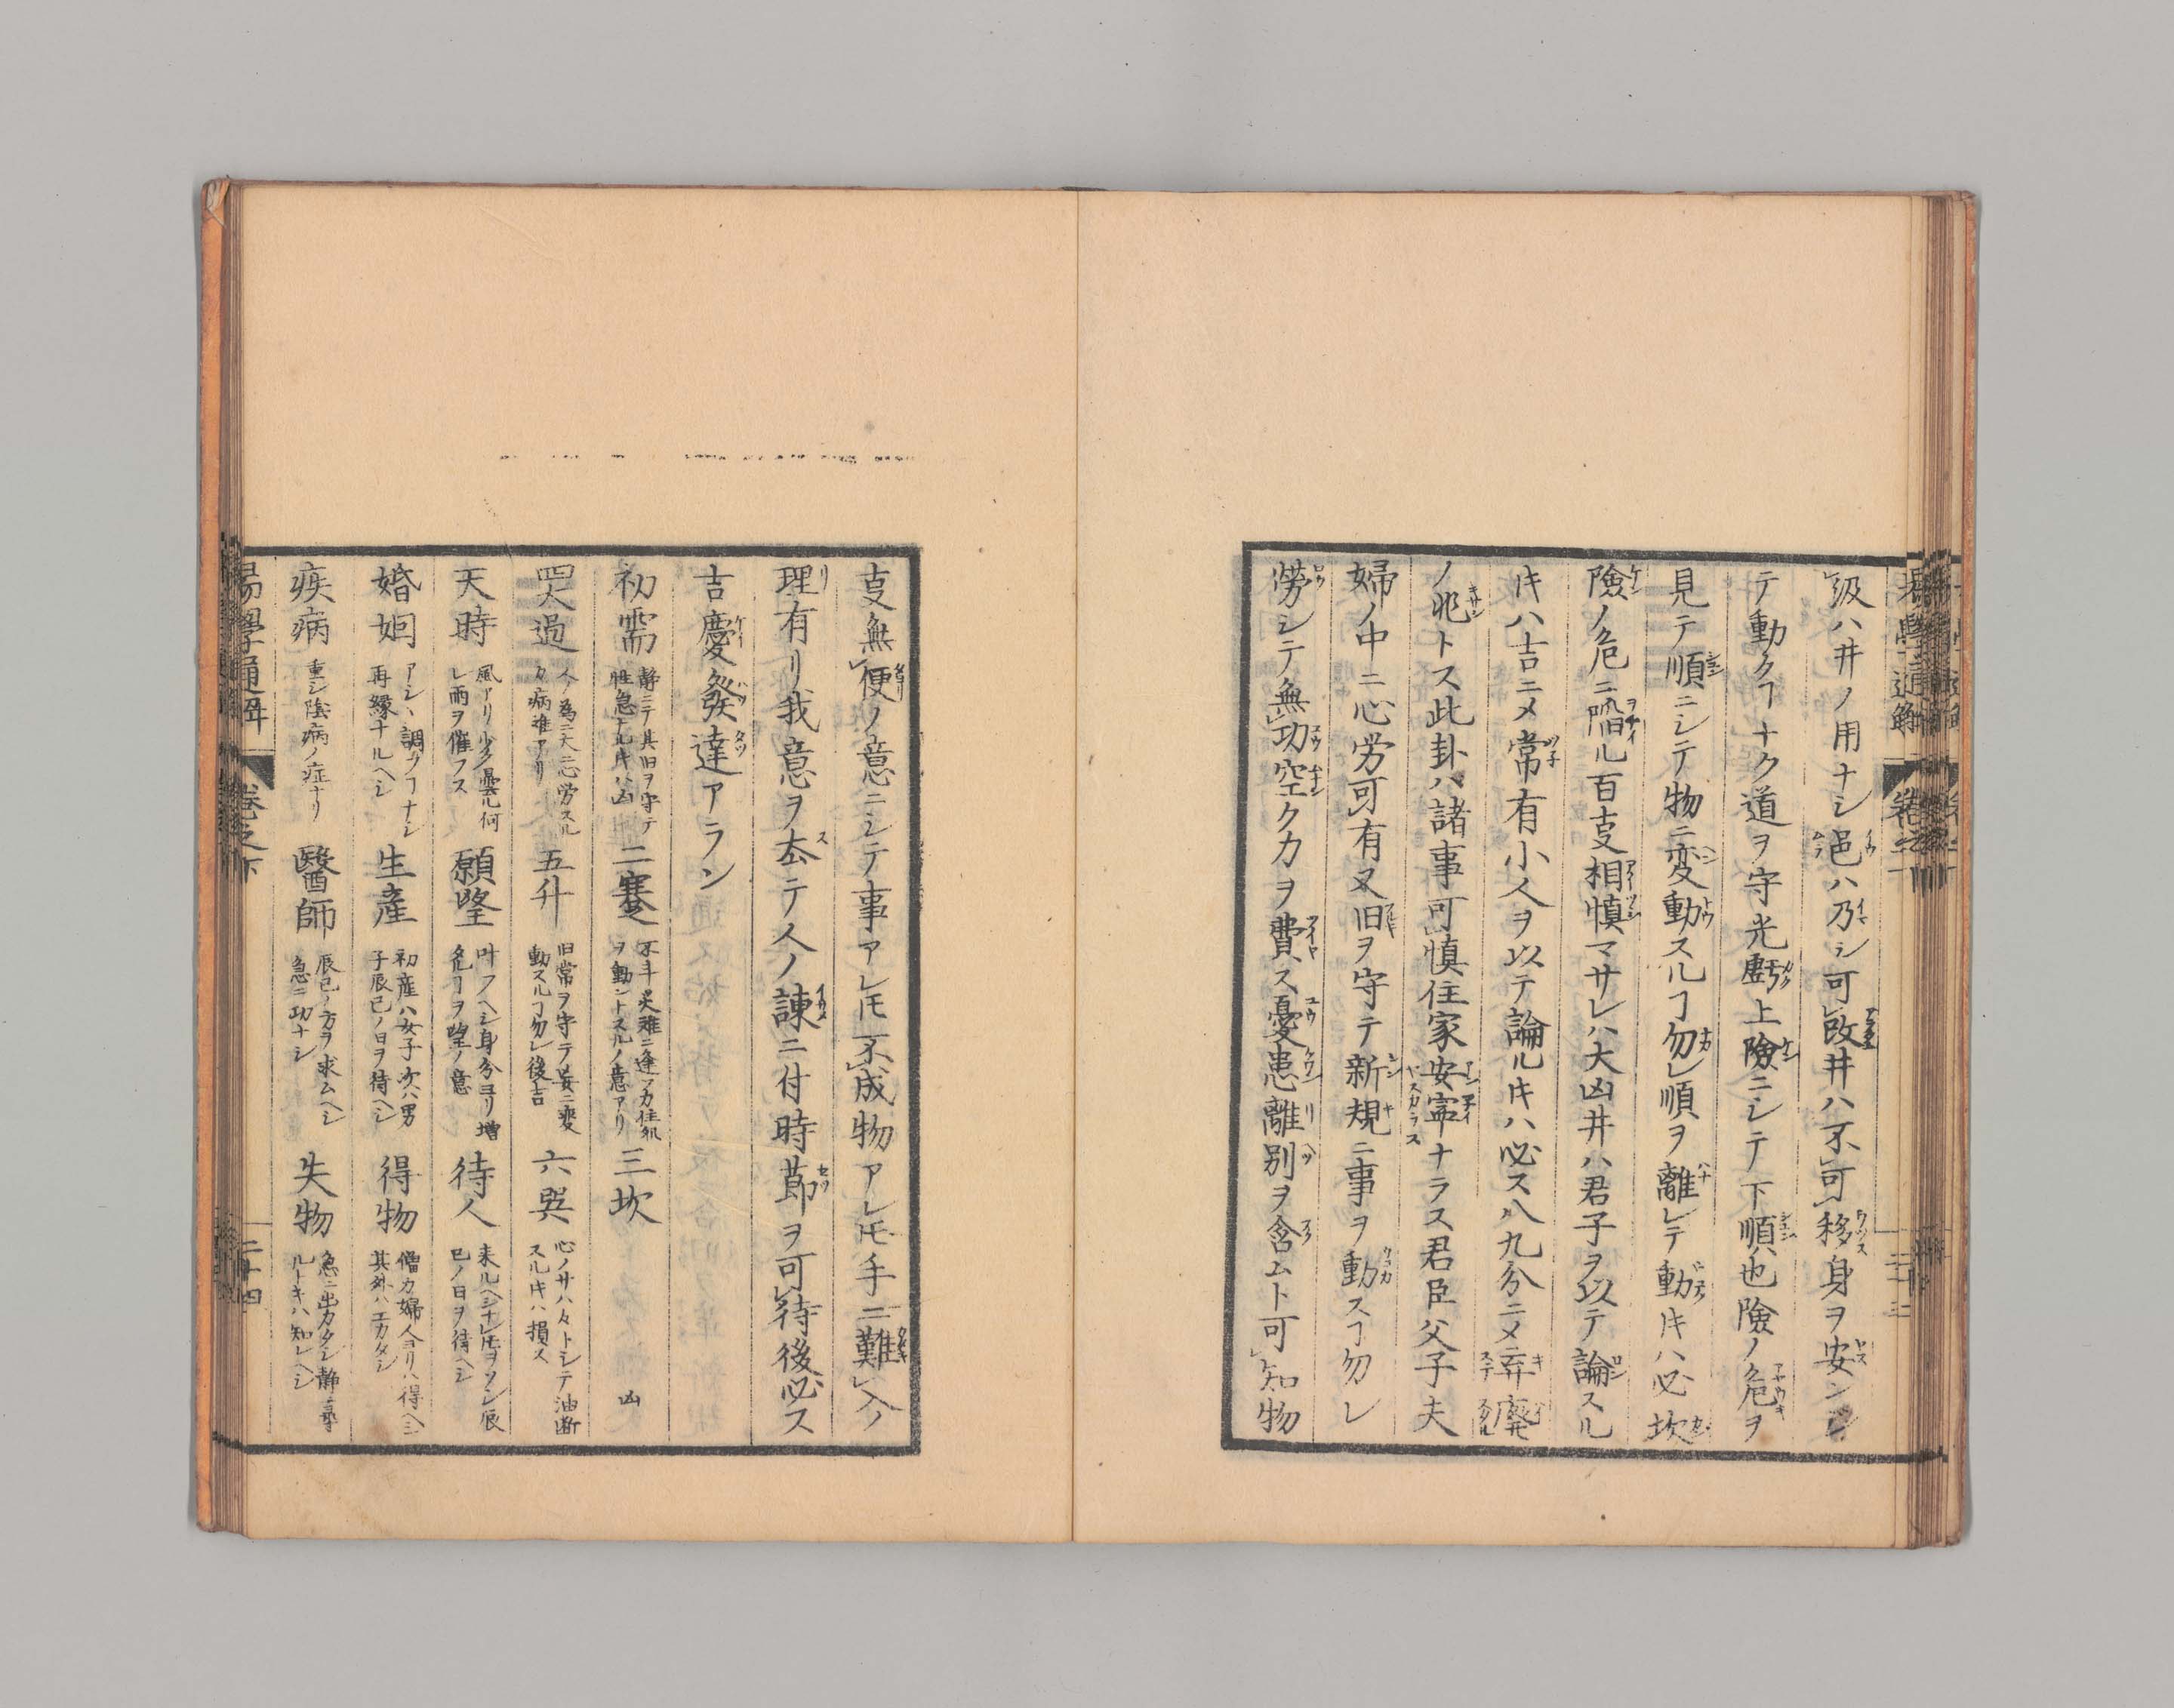 汲ハ井ノ用ナシ邑ハ乃シ可改井ハ不可移身ヲ安ンジ
テ動クヿナク道ヲ守光虧上險ニシテ下順也險ノ危ヲ
見テ順ニシテ物ニ変動スルヿ勿順ヲ離レテ動キハ必坎
險ノ危ニ陷ル百支相慎マサレハ大凶井ハ君子ヲ以テ論スル
キハ吉ニメ常有小人ヲ以テ論ルキハ必ス八九分ニメ弃廃
ノ兆トス此卦ハ諸事可慎住家安寧ナラス君臣父子夫
婦ノ中ニ心労可有又旧ヲ守テ新規ニ事ヲ動スヿ勿レ
労シテ無功空クカヲ費ス憂患離別ヲ含ムト可知物
支無便ノ意ニシテ事アレ𪜈不成物アレ𪜈手ニ難入ノ
理有リ我意ヲ去テ人ノ諌ニ付時節ヲ可待後必ス
吉慶發達アラン
初需 静ニテ其旧ヲ守テ
性急ナルキハ凶
二蹇 不斗災難ニ逢フカ住処
ヲ動ントスルノ意アリ
三坎 凶
四大過 人ノ為ニ大ニ心労スル
又病難アリ
五升 旧常ヲ守テ妄ニ変
動スルヿ勿レ後吉
六巽 心ノサハ々トシテ油断
スルキハ損ス
天時 風アリ少ク曇ル何
レ雨ヲ催フス
願望 叶フヘシ身分ヨリ増
危ヿヲ望ノ意
待人 来ルヘシナレ𪜈ヲソシ辰
巳ノ日ヲ待ヘシ
婚姻 アシヽ調フヿナシ
再縁ナルヘシ
生産 初産ハ女子次ハ男
子辰巳ノ日ヲ待ヘシ
得物 僧カ婦人ヨリハ得ヘシ
其外ハエカタシ
疾病 重シ陰病ノ症ナリ
醫師 辰巳ノ方ヲ求ムヘシ
急ニ功ナシ
失物 急ニ出カタシ静ニ尋
ルトキハ知レヘシ
易學通解 卷之下 二十四